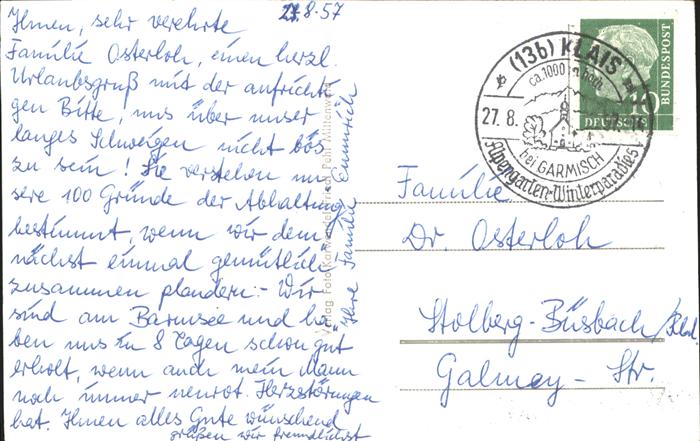 27.8.57
Ihnen, sehr verehrte
Familie Osterloh, einen herzl.
Urlaubsgruß mit der aufrichti
gen Bitte, uns über unser
langes Schweigen nicht bös
zu sein! Sie verstehen un
sere 100 Gründe der Abhaltung
bestimmt, wenn wir dem
nächst einmal gemütlich
zusammen plaudern.- Wir
sind am Barmsee und ha
ben uns in 8 Tagen schon gut
erholt, wenn auch mein Mann
noch immer Herzstörungen
hat. Ihnen alles Gute wünschend
grüßen wir freundlichst
Ihre Familie Emmrich
Verlag Foto Karwendel
(13b) KLAIS
ca. 1000 m hoch
27.8.
bei GARMISCH
Alpengarten-Winterparadies
10
DEUTSCHE
BUNDESPOST
Familie
Dr. Osterloh
Stolberg-Büsbach/Rhld.
Galmey-Str.